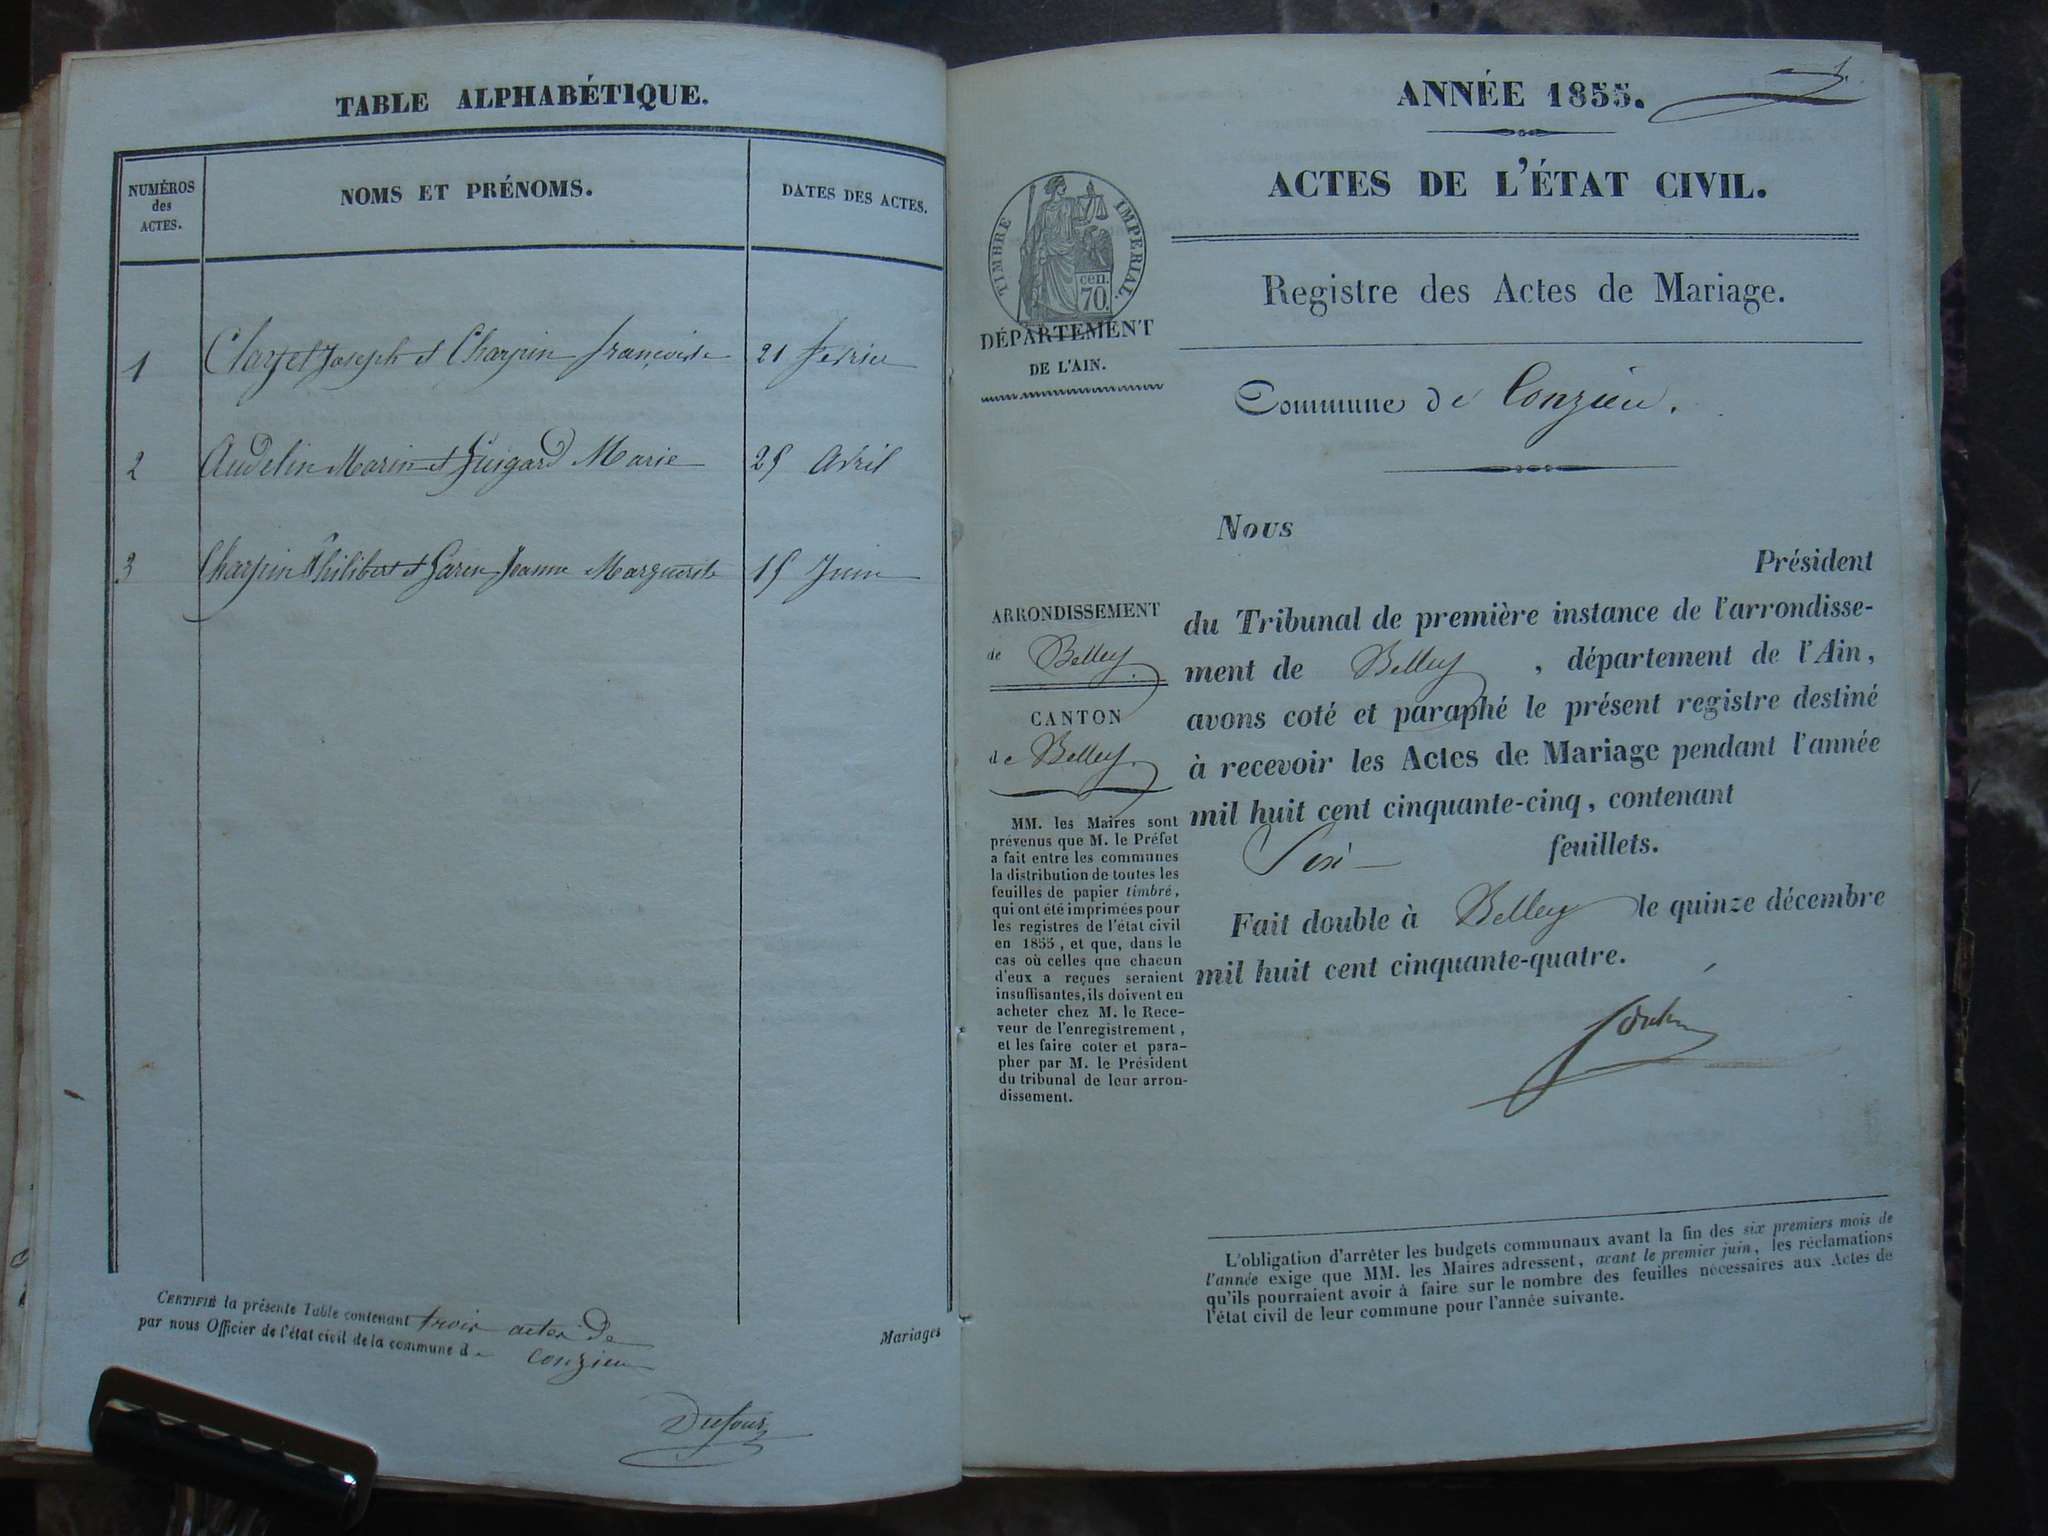 TABLE ALPHABÉTIQUE.
NUMÉROS
des
ACTES.
NOMS ET PRÉNOMS.
DATES DES ACTES.
1 Joseph et Charpin françoise 21 fevrier
2 Audelin Marin et Guigard Marie 25 Avril
3 Charpin Philibert et Jeanne Marguerite 15 Juin
CERTIFIÉ la présente Table contenant trois actes de
par nous Officier de l'état civil de la commune de Conzieu
Mariages
Dufour
ANNÉE 1855.
ACTES DE L'ÉTAT CIVIL.
TIMBRE IMPERIAL.
cen.
70.
DÉPARTEMENT
DE L'AIN.
Registre des Actes de Mariage.
Commune de Conzieu.
Nous
Président
du Tribunal de première instance de l'arrondisse-
ment de Belley, département de l'Ain,
avons coté et paraphé le présent registre destiné
à recevoir les Actes de Mariage pendant l'année
mil huit cent cinquante-cinq, contenant
Six feuillets.
Fait double à Belley le quinze décembre
mil huit cent cinquante-quatre.
ARRONDISSEMENT
de Belley.
CANTON
de Belley.
MM. les Maires sont
prévenus que M. le Préfet
a fait entre les communes
la distribution de toutes les
feuilles de papier timbré,
qui ont été imprimées pour
les registres de l'état civil
en 1855, et que, dans le
cas où celles que chacun
d'eux a reçues seraient
insuffisantes, ils doivent en
acheter chez M. le Rece-
veur de l'enregistrement,
et les faire coter et para-
pher par M. le Président
du tribunal de leur arron-
dissement.
L'obligation d'arrêter les budgets communaux avant la fin des six premiers mois de
l'année exige que MM. les Maires adressent, avant le premier juin, les réclamations
qu'ils pourraient avoir à faire sur le nombre des feuilles nécessaires aux Actes de
l'état civil de leur commune pour l'année suivante.